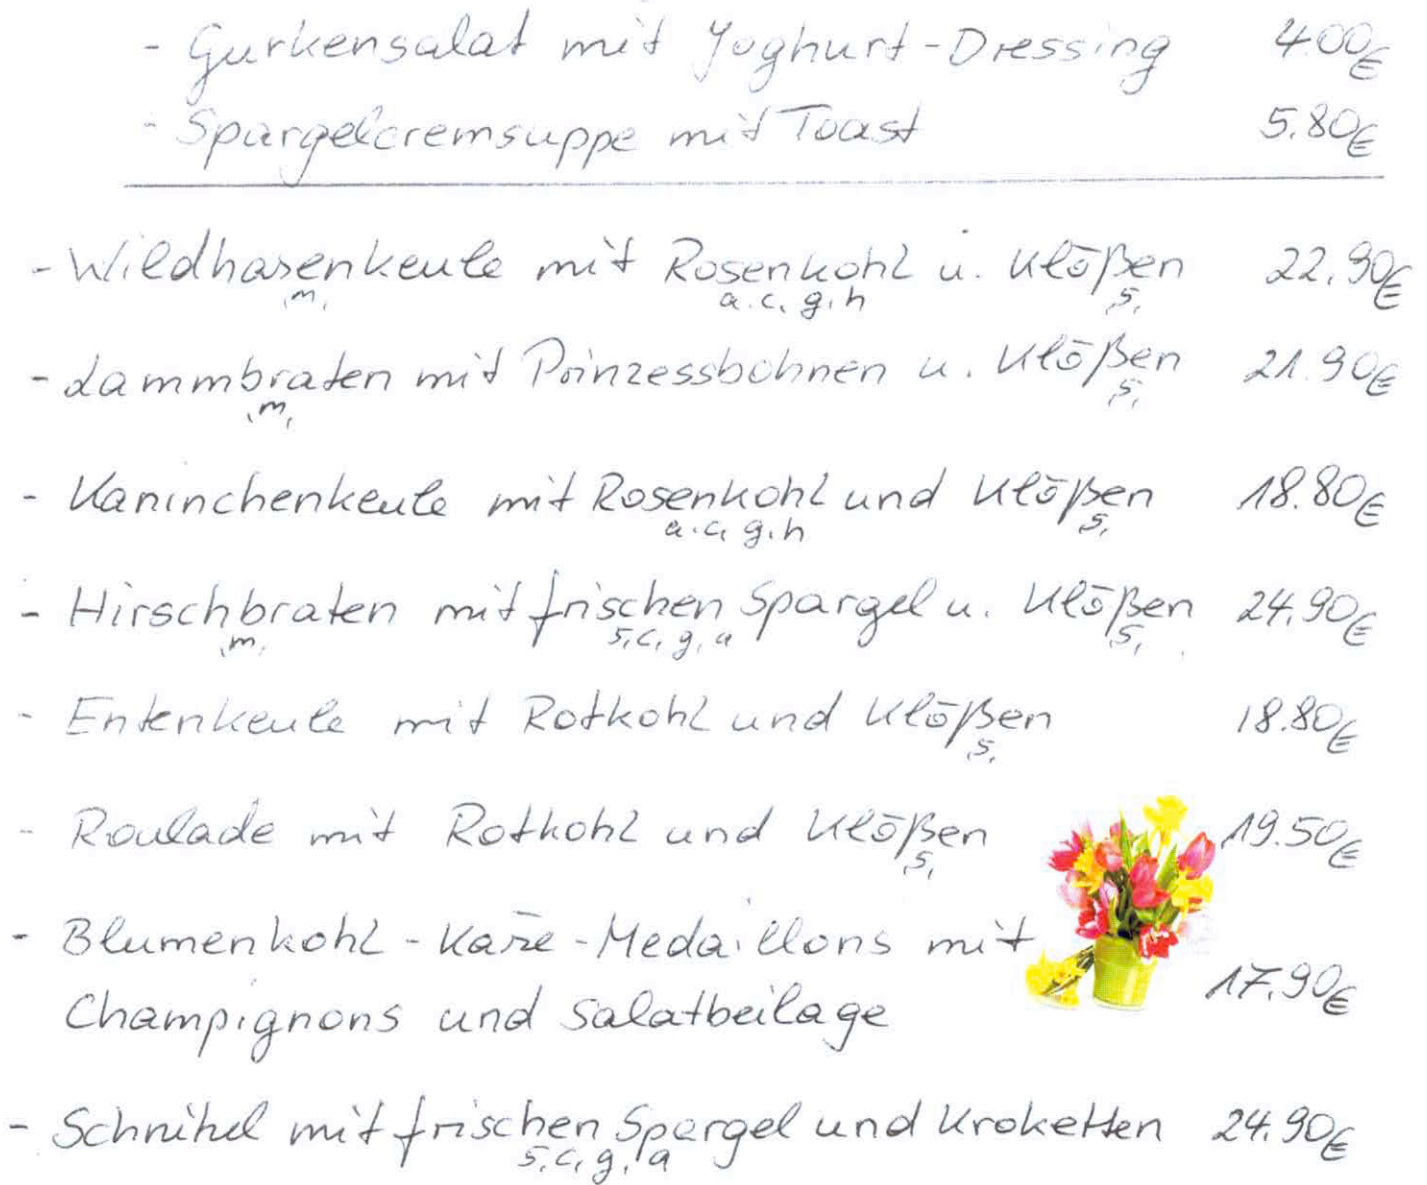 - Gurkensalat mit Joghurt-Dressing 4.00€
- Spargelcremsuppe mit Toast 5.80€
- Wildhasenkeule mit Rosenkohl u. Klößen 22.90€
,m, a.c, g,h ,5,
- Lammbraten mit Prinzessbohnen u. Klößen 21.90€
,m, ,5,
- Kaninchenkeule mit Rosenkohl und Klößen 18.80€
a.c, g.h 5,
- Hirschbraten mit frischen Spargel u. Klößen 24.90€
,m, 5,c, g, a ,5,
- Entenkeule mit Rotkohl und Klößen 18.80€
,5,
- Roulade mit Rotkohl und Klößen 19.50€
,5,
- Blumenkohl-Käse-Medaillons mit
Champignons und Salatbeilage 17.90€
- Schnitzel mit frischen Spargel und Kroketten 24.90€
5,c, g, a